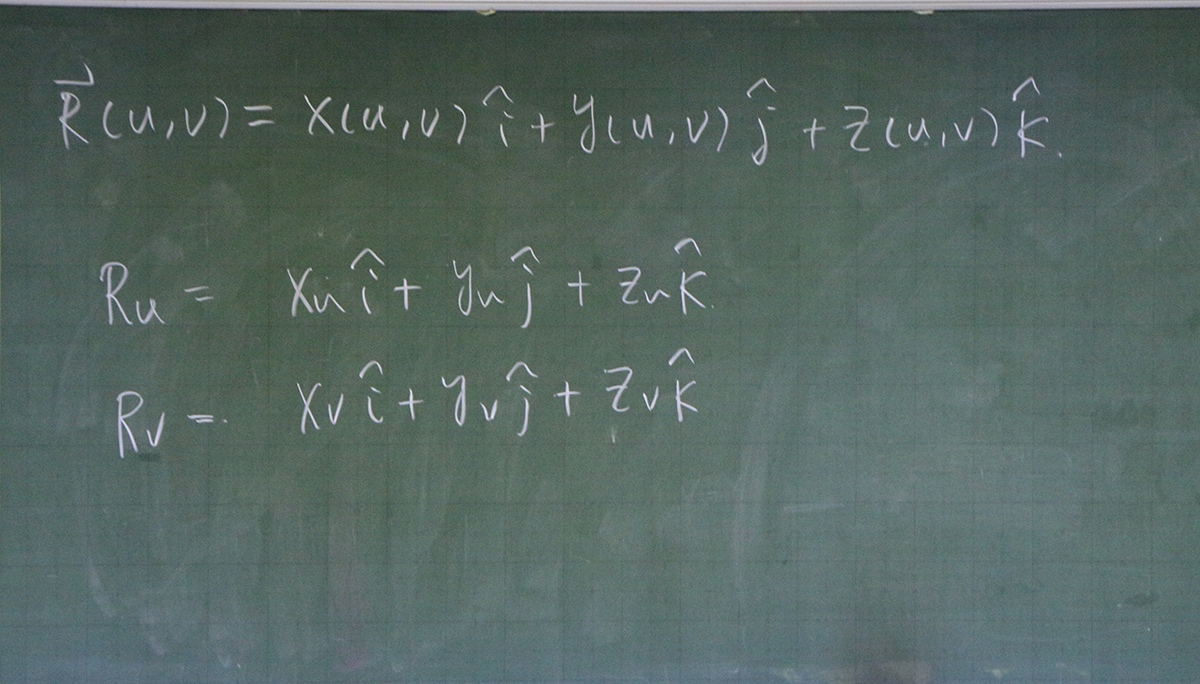 R⃗(u,v) = x(u,v) î + y(u,v) ĵ + z(u,v) k̂.
Ru = xu î + yu ĵ + zu k̂.
Rv = xv î + yv ĵ + zv k̂